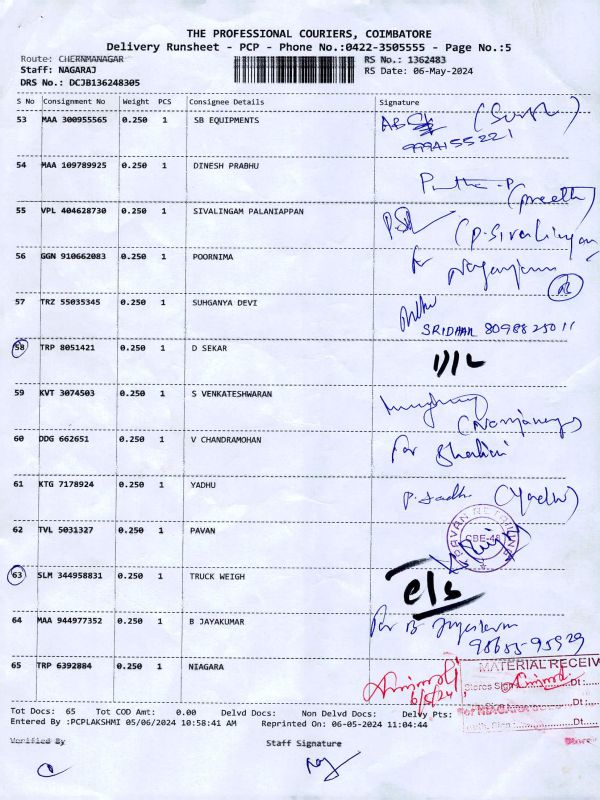 THE PROFESSIONAL COURIERS, COIMBATORE
Delivery Runsheet - PCP - Phone No.:0422-3505555 - Page No.:5
Route: CHERNMANAGAR
Staff: NAGARAJ
DRS No.: DCJB136248305
RS No.: 1362483
RS Date: 06-May-2024
S No Consignment No Weight PCS Consignee Details Signature
53 MAA 300955565 0.250 1 SB EQUIPMENTS
9994155221
54 MAA 109789925 0.250 1 DINESH PRABHU
(preethi)
55 VPL 404628730 0.250 1 SIVALINGAM PALANIAPPAN
(P. Sivalingam
56 GGN 910662083 0.250 1 POORNIMA
57 TRZ 55035345 0.250 1 SUHGANYA DEVI
SRIDHAR 8098825011
58 TRP 8051421 0.250 1 D SEKAR
D/L
59 KVT 3074503 0.250 1 S VENKATESHWARAN
60 DDG 662651 0.250 1 V CHANDRAMOHAN
61 KTG 7178924 0.250 1 YADHU
(Yadhu)
62 TVL 5031327 0.250 1 PAVAN
63 SLM 344958831 0.250 1 TRUCK WEIGH
64 MAA 944977352 0.250 1 B JAYAKUMAR
For B. Jayakumar
98655-95929
65 TRP 6392884 0.250 1 NIAGARA
6/5/24
MATERIAL RECEIV
Stores Sign Dt:
Dt:
Tot Docs: 65 Tot COD Amt: 0.00 Delvd Docs: Non Delvd Docs: Delvy Pts:
Entered By :PCPLAKSHMI 05/06/2024 10:58:41 AM Reprinted On: 06-05-2024 11:04:44
Verified By Staff Signature